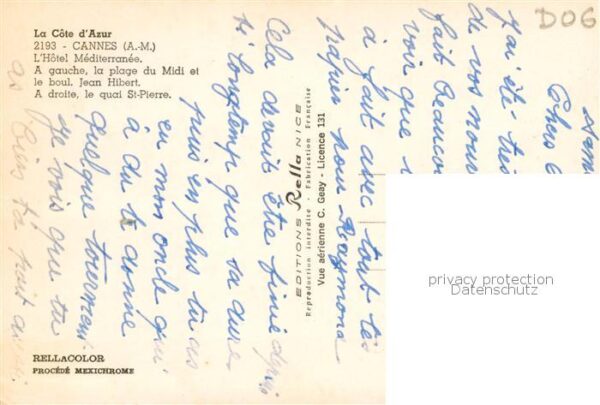 La Côte d'Azur
2193 - CANNES (A.-M.)
L'Hôtel Méditerranée.
A gauche, la plage du Midi et
le boul. Jean Hibert.
A droite, le quai St-Pierre.
D06
Chers
J'ai été très
de vos nouv
fait beaucou
voir que
a fait avec tout tes
papiers pour Raymond
Cela devait être finie depuis
si longtemp que sa dure
puis en plus tu as
eu mon oncle qui
a du te donne
quelque tourment
je vois que tu
as bien
EDITIONS Rella NICE
Reproduction Interdite - Fabrication Française
Vue aérienne C. Geay - Licence 131
privacy protection
Datenschutz
RELLACOLOR
PROCÉDÉ MEXICHROME